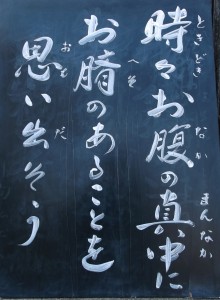 ときどき なか まんなか
時々お腹の真中に
へそ
お臍のあることを
おも だ
思い出そう